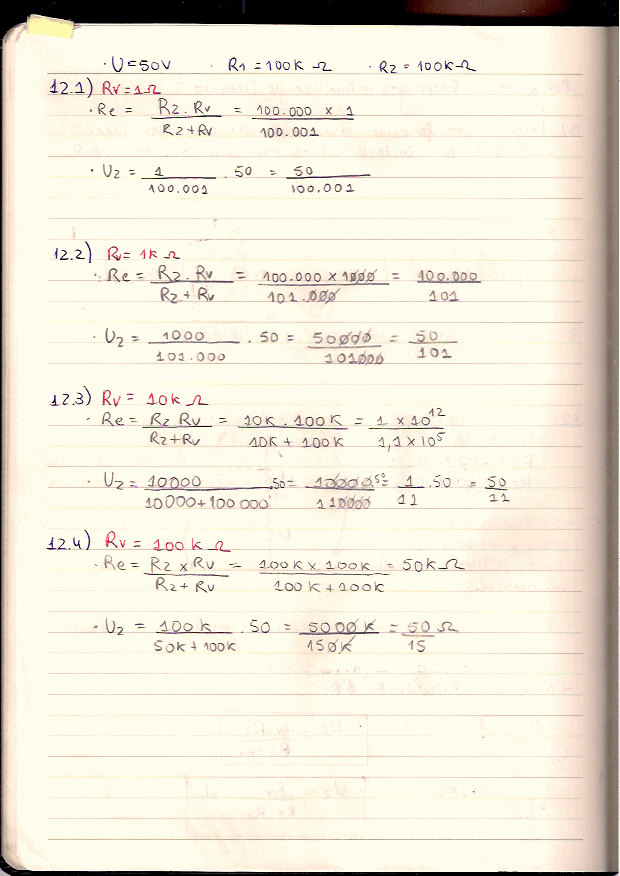 · U=50V · R1=100K Ω · R2=100KΩ
12.1) Rv=1Ω
· Re = R2.Rv / R2+Rv = 100.000 x 1 / 100.001
· U2 = 1 / 100.001 . 50 = 50 / 100.001
12.2) Rv= 1K Ω
· Re = R2.Rv / R2+Rv = 100.000 x 1000 / 101.000 = 100.000 / 101
· U2 = 1000 / 101.000 . 50 = 50000 / 101000 = 50 / 101
12.3) Rv= 10KΩ
· Re= R2 Rv / R2+Rv = 10K . 100K / 10K + 100K = 1 x 10^12 / 1,1 x 10^5
· U2= 10000 / 10000+100000 .50= 10000 50 / 110000 = 1 / 11 .50 = 50 / 11
12.4) Rv = 100K Ω
· Re= R2 x Rv / R2+Rv = 100K x 100K / 100K+100K = 50KΩ
· U2 = 100K / 50K+100K . 50 = 5000K / 150K = 50 Ω / 15